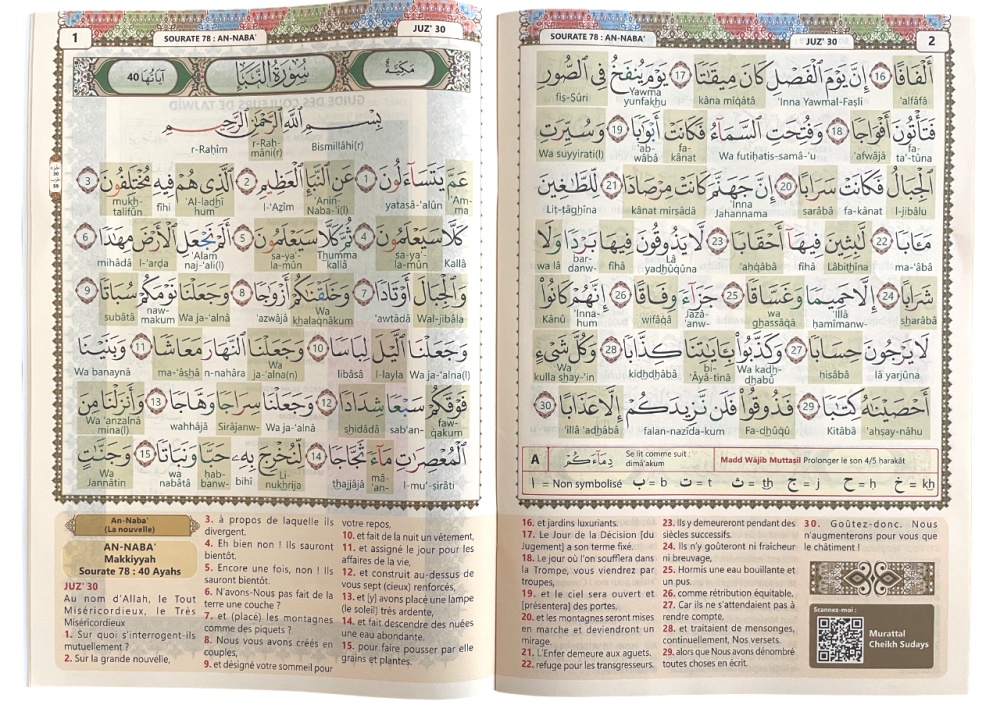 1
SOURATE 78 : AN-NABA'
JUZ' 30
مَكِّيَّة
سُورَةُ النَّبَإِ
آيَاتُهَا 40
بِسْمِ اللَّهِ الرَّحْمَٰنِ الرَّحِيمِ
Bismillāhi(r) r-Raḥ-māni(r) r-Raḥīm
عَمَّ يَتَسَآءَلُونَ 1 عَنِ النَّبَإِ الْعَظِيمِ 2 الَّذِي هُمْ فِيهِ مُخْتَلِفُونَ 3
'Am-ma yatasā-'alūn 'Anin-Naba-'i(l) l-'Aẓīm 'Al-ladhī hum fīhi mukh-talifūn
كَلَّا سَيَعْلَمُونَ 4 ثُمَّ كَلَّا سَيَعْلَمُونَ 5 أَلَمْ نَجْعَلِ الْأَرْضَ مِهَٰدًا 6
Kallā sa-ya'-la-mūn Thumma kallā sa-ya'-la-mūn 'Alam naj-'ali(l) l-'arḍa mihādā
وَالْجِبَالَ أَوْتَادًا 7 وَخَلَقْنَٰكُمْ أَزْوَٰجًا 8 وَجَعَلْنَا نَوْمَكُمْ سُبَاتًا 9
Wal-jibāla 'awtādā Wa khalaqnākum 'azwājā Wa ja-'alnā naw-makum subātā
وَجَعَلْنَا الَّيْلَ لِبَاسًا 10 وَجَعَلْنَا النَّهَارَ مَعَاشًا 11 وَبَنَيْنَا
Wa ja-'alna(l) l-layla libāsā Wa ja-'alna(n) n-nahāra ma-'āshā Wa banaynā
فَوْقَكُمْ سَبْعًا شِدَادًا 12 وَجَعَلْنَا سِرَاجًا وَهَّاجًا 13 وَأَنزَلْنَا مِنَ
faw-qakum sab'an- shidādā Wa ja-'alnā Sirājanw- wahhājā Wa 'anzalnā mina(l)
الْمُعْصِرَٰتِ مَآءً ثَجَّاجًا 14 لِّنُخْرِجَ بِهِۦ حَبًّا وَنَبَاتًا 15 وَجَنَّٰتٍ
l-mu'-ṣirāti mā-'an- thajjājā Li nukhrija bihī hab-banw- wa nabātā wa Jannātin
An-Naba'
(La nouvelle)
AN-NABA'
Makkiyyah
Sourate 78 : 40 Ayahs
JUZ' 30
Au nom d'Allah, le Tout
Miséricordieux, le Très
Miséricordieux
1. Sur quoi s'interrogent-ils
mutuellement ?
2. Sur la grande nouvelle,
3. à propos de laquelle ils
divergent.
4. Eh bien non ! Ils sauront
bientôt.
5. Encore une fois, non ! Ils
sauront bientôt.
6. N'avons-Nous pas fait de la
terre une couche ?
7. et (placé) les montagnes
comme des piquets ?
8. Nous vous avons créés en
couples,
9. et désigné votre sommeil pour
votre repos,
10. et fait de la nuit un vêtement,
11. et assigné le jour pour les
affaires de la vie,
12. et construit au-dessus de
vous sept (cieux) renforcés,
13. et [y] avons placé une lampe
(le soleil) très ardente,
14. et fait descendre des nuées
une eau abondante.
15. pour faire pousser par elle
grains et plantes.
SOURATE 78 : AN-NABA'
JUZ' 30
2
أَلْفَافًا 16 إِنَّ يَوْمَ الْفَصْلِ كَانَ مِيقَٰتًا 17 يَوْمَ يُنفَخُ فِي الصُّورِ
'alfāfā 'Inna Yawmal-Faṣli kāna mīqātā Yawma yunfakhu fiṣ-Ṣūri
فَتَأْتُونَ أَفْوَاجًا 18 وَفُتِحَتِ السَّمَآءُ فَكَانَتْ أَبْوَٰبًا 19 وَسُيِّرَتِ
fa-ta'-tūna 'afwājā Wa futiḥatis-samā-'u fa-kānat 'ab-wābā Wa suyyirati(l)
الْجِبَالُ فَكَانَتْ سَرَابًا 20 إِنَّ جَهَنَّمَ كَانَتْ مِرْصَادًا 21 لِّلطَّٰغِينَ
l-jibālu fa-kānat sarābā 'Inna Jahannama kānat mirṣādā Liṭ-ṭāghīna
مَـَٔابًا 22 لَّٰبِثِينَ فِيهَآ أَحْقَابًا 23 لَّا يَذُوقُونَ فِيهَا بَرْدًا وَلَا
ma-'ābā Lābithīna fīhā 'aḥqābā Lā yadhūqūna fīhā bar-danw- wa lā
شَرَابًا 24 إِلَّا حَمِيمًا وَغَسَّاقًا 25 جَزَآءً وِفَاقًا 26 إِنَّهُمْ كَانُوا
sharābā 'Illā ḥamīmanw- wa ghassāqā Jazā-'anw- wifāqā 'Inna-hum Kānū
لَا يَرْجُونَ حِسَابًا 27 وَكَذَّبُوا بِـَٔايَٰتِنَا كِذَّابًا 28 وَكُلَّ شَيْءٍ
lā yarjūna ḥisābā Wa kadh-dhabū bi-'Āyā-tinā kidhdhābā Wa kulla shay-'in
أَحْصَيْنَٰهُ كِتَٰبًا 29 فَذُوقُوا فَلَن نَّزِيدَكُمْ إِلَّا عَذَابًا 30
'aḥṣay-nāhu Kitābā Fa-dhūqū falan-nazīda-kum 'illā 'adhābā
A
Se lit comme suit :
dimā'akum
دِمَآءَكُمْ
Madd Wājib Muttaṣil Prolonger le son 4/5 ḥarakāt
ا = Non symbolisé ب = b ت = t ث = th ج = j ح = ḥ خ = kh
16. et jardins luxuriants.
17. Le Jour de la Décision [du
Jugement] a son terme fixé.
18. Le jour où l'on soufflera dans
la Trompe, vous viendrez par
troupes,
19. et le ciel sera ouvert et
[présentera] des portes.
20. et les montagnes seront mises
en marche et deviendront un
mirage.
21. L'Enfer demeure aux aguets.
22. refuge pour les transgresseurs.
23. Ils y demeureront pendant des
siècles successifs.
24. Ils n'y goûteront ni fraîcheur
ni breuvage,
25. Hormis une eau bouillante et
un pus.
26. comme rétribution équitable.
27. Car ils ne s'attendaient pas à
rendre compte,
28. et traitaient de mensonges,
continuellement, Nos versets.
29. alors que Nous avons dénombré
toutes choses en écrit.
30. Goûtez-donc. Nous
n'augmenterons pour vous que
le châtiment !
Scannez-moi :
Murattal
Cheikh Sudays